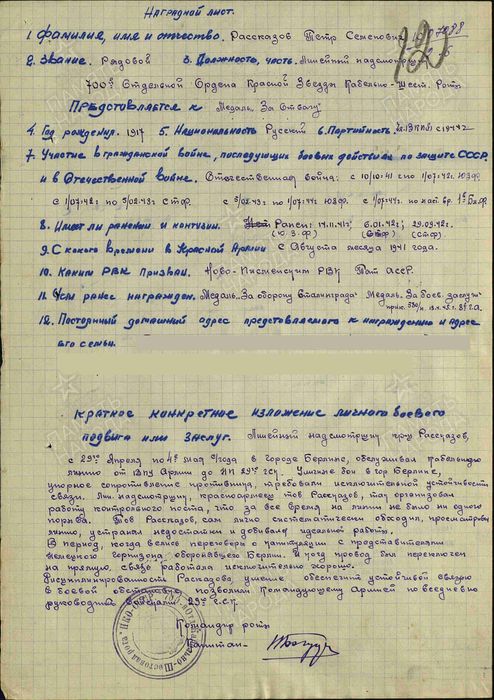 Наградной лист.
1. Фамилия, имя и отчество. Рассказов Петр Семенович
2. Звание. Рядовой 3. Должность, часть. Линейный надсмотрщик
700ой Отдельной Ордена Красной Звезды Кабельно-Шест. Роты
Представляется к Медаль "За Отвагу"
4. Год рождения. 1917 5. Национальность Русский 6. Партийность чл. ВКП(б) с 1944 г
7. Участие в гражданской войне, последующих боевых действиях по защите СССР
и в Отечественной войне. Отечественная война: с 10/10-41г по 1/07-42г. Ю.З.Ф.
с 1/07-42г. по 5/02-43г. Ст.Ф. с 5/02-43г по 1/07-44г. 1го Бел.Ф.
8. Имеет ли ранения и контузии. Ранен: 14.11.41г; 6.01.42г; 29.09.42г.
(Ю.З.Ф) (Ст.Ф.)
9. С какого времени в Красной Армии с Августа месяца 1941 года.
10. Каким РВК призван. Ново-Письменским РВК Тат АССР.
11. Чем ранее награжден. Медаль "За оборону Сталинграда" Медаль "За боев. заслуги"
12. Постоянный домашний адрес представляемого к награждению и адрес
его семьи.
Краткое конкретное изложение личного боевого
подвига или заслуг. Линейный надсмотрщик кр-ц Рассказов,
с 29го Апреля по 4е мая с/года в городе Берлине, обслуживал кабельную
линию от ВПУ Армии до НП 29го ГСК. Уличные бои в гор Берлине,
упорное сопротивление противника, требовали исключительной устойчивости
связи. Лин. надсмотрщик, красноармеец тов Рассказов, так организовал
работу контрольного поста, что за все время на линии не было ни одного
порыва. Тов Рассказов, сам лично систематически обходил, просматривал
линию, устранял недостатки и добивался идеальной работы.
В период, когда велись переговоры о капитуляции с представителями
немецкого гарнизона оборонявшего Берлин и когда провод был переключен
на прямую, связь работала исключительно хорошо.
Дисциплинированность Рассказова, умение обеспечить устойчивой связью
в боевой обстановке, позволили Командующему Армией повседневно
руководить 29го Г.С.К.
Командир роты
Капитан -